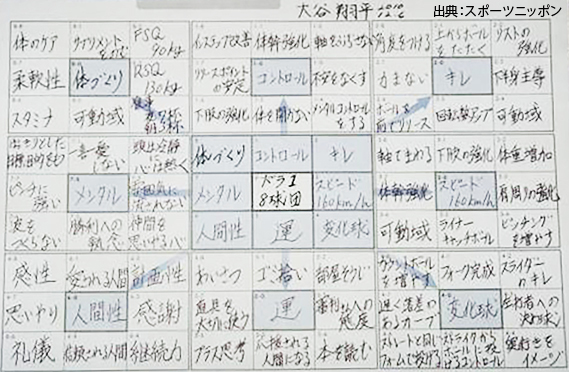 大谷 翔平
出典：スポーツニッポン
体のケア
サプリメント
をのむ
FSQ
90kg
インステップ改善
体幹強化
軸をぶらさない
角度をつける
上からボール
をたたく
リストの
強化
柔軟性
体づくり
RSQ
130kg
リリースポイント
の安定
コントロール
不安をなくす
力まない
キレ
下半身主導
スタミナ
可動域
食事
夜7杯
朝3杯
下肢の強化
体を開かない
メンタルコントロール
をする
ボールを
前でリリース
回転数アップ
可動域
はっきりとした
目標目的をもつ
一喜一憂
しない
頭は冷静に
心は熱く
体づくり
コントロール
キレ
軸でまわる
下肢の強化
体重増加
ピンチに
強い
メンタル
雰囲気に
流されない
メンタル
ドラ1
8球団
スピード
160km/h
体幹強化
スピード
160km/h
肩周りの強化
波を
つくらない
勝利への
執念
仲間を
思いやる心
人間性
運
変化球
可動域
ライナー
キャッチボール
ピッチング
を増やす
感性
愛される人間
計画性
あいさつ
ゴミ拾い
部屋そうじ
カウントボール
を増やす
フォーク完成
スライダー
のキレ
思いやり
人間性
感謝
道具を
大切に使う
運
審判さんへの
態度
遅く落差の
あるカーブ
変化球
左打者への
決め球
礼儀
信頼される人間
継続力
プラス思考
応援される
人間になる
本を読む
ストレートと同じ
フォームで投げる
ストライクから
ボールに投げ
るコントロール
奥行きを
イメージ